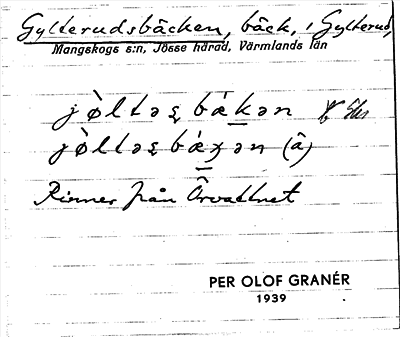 Gylterudsbäcken, bäck, i Gylterud,
Mangskogs s:n, Jösse härad, Värmlands län
jòltəș bækən
jòltəș bæʒən (â)
Rinner från Örvattnet
PER OLOF GRANÉR
1939